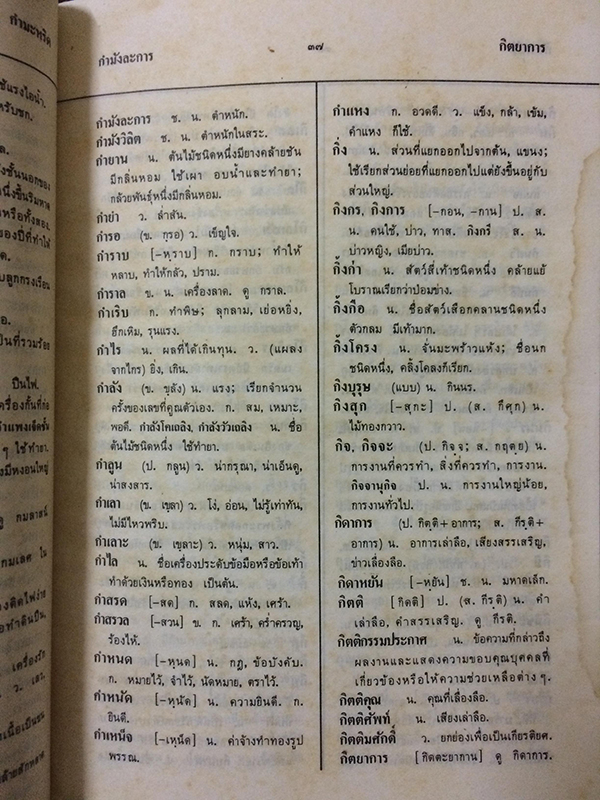 กำมะหริด
กำมังละการ
๓๗
กิตยาการ
กำมังละการ ช. น. ตำหนัก.
กำมังวิลิต ช. น. ตำหนักในสระ.
กำยาน น. ต้นไม้ชนิดหนึ่งมียางคล้ายชัน
มีกลิ่นหอม ใช้เผา อบน้ำและทำยา;
กล้วยพันธุ์หนึ่งมีกลิ่นหอม.
กำยำ ว. ล่ำสัน.
กำรอ (ข. กฺรอ) ว. เข็ญใจ.
กำราบ [-หฺราบ] ก. กราบ; ทำให้
หลาบ, ทำให้กลัว, ปราม.
กำราล ข. น. เครื่องลาด. ดู กราล.
กำเริบ ก. กำพิษ; ลุกลาม, เย่อหยิ่ง,
ฮึกเหิม, รุนแรง.
กำไร น. ผลที่ได้เกินทุน. ว. (แผลง
จากไกร) ยิ่ง, เกิน.
กำลัง (ข. ขฺลัง) น. แรง; เรียกจำนวน
ครั้งของเลขที่คูณตัวเอง. ก. สม, เหมาะ,
พอดี. กำลังโคเถลิง, กำลังวัวเถลิง น. ชื่อ
ต้นไม้ชนิดหนึ่ง ใช้ทำยา.
กำลูน (ป. กลูน) ว. น่ากรุณา, น่าเอ็นดู,
น่าสงสาร.
กำเลา (ข. เขฺลา) ว. โง่, อ่อน, ไม่รู้เท่าทัน,
ไม่มีไหวพริบ.
กำเลาะ (ข. เขฺลาะ) ว. หนุ่ม, สาว.
กำไล น. ชื่อเครื่องประดับข้อมือหรือข้อเท้า
ทำด้วยเงินหรือทอง เป็นต้น.
กำสรด [-สด] ก. สลด, แห้ง, เศร้า.
กำสรวล [-สวน] ข. ก. เศร้า, คร่ำครวญ,
ร้องไห้.
กำหนด [-หฺนด] น. กฎ, ข้อบังคับ.
ก. หมายไว้, จำไว้, นัดหมาย, ตราไว้.
กำหนัด [-หฺนัด] น. ความยินดี. ก.
ยินดี.
กำเหน็จ [-เหฺน็ด] น. ค่าจ้างทำทองรูป
พรรณ.
กำแหง ก. อวดดี. ว. แข็ง, กล้า, เข้ม,
คำแหง ก็ใช้.
กิ่ง น. ส่วนที่แยกออกไปจากต้น, แขนง;
ใช้เรียกส่วนย่อยที่แยกออกไปแต่ยังขึ้นอยู่กับ
ส่วนใหญ่.
กิงกร, กิงการ [-กอน, -กาน] ป. ส.
น. คนใช้, บ่าว, ทาส. กิงกรี ส. น.
บ่าวหญิง, เมียบ่าว.
กิ้งก่า น. สัตว์สี่เท้าชนิดหนึ่ง คล้ายแย้
โบราณเรียกว่าป่อมข่าง.
กิ้งกือ น. ชื่อสัตว์เลือกคลานชนิดหนึ่ง
ตัวกลม มีเท้ามาก.
กิ้งโครง น. จั่นมะพร้าวแห้ง; ชื่อนก
ชนิดหนึ่ง, คลิ้งโคลงก็เรียก.
กิงบุรุษ (แบบ) น. กินนร.
กิงสุก [-สุกะ] ป. (ส. กึศุก) น.
ไม้ทองกวาว.
กิจ, กิจจะ (ป. กิจฺจ; ส. กฤตฺย) น.
การงานที่ควรทำ, สิ่งที่ควรทำ, การงาน.
กิจจานุกิจ ป. น. การงานใหญ่น้อย,
การงานทั่วไป.
กิดาการ (ป. กิตฺติ+อาการ; ส. กีรฺติ+
อาการ) น. อาการเล่าลือ, เสียงสรรเสริญ,
ข่าวเลื่องลือ.
กิดาหยัน [-หฺยัน] ช. น. มหาดเล็ก.
กิตติ [กิดติ] ป. (ส. กีรฺติ) น. คำ
เล่าลือ, คำสรรเสริญ. ดู กีรติ.
กิตติกรรมประกาศ น. ข้อความที่กล่าวถึง
ผลงานและแสดงความขอบคุณบุคคลที่
เกี่ยวข้องหรือให้ความช่วยเหลือต่าง ๆ.
กิตติคุณ น. คุณที่เลื่องลือ.
กิตติศัพท์ น. เสียงเล่าลือ.
กิตติมศักดิ์ ว. ยกย่องเพื่อเป็นเกียรติยศ.
กิตยาการ [กิดตะยากาน] ดู กิดาการ.